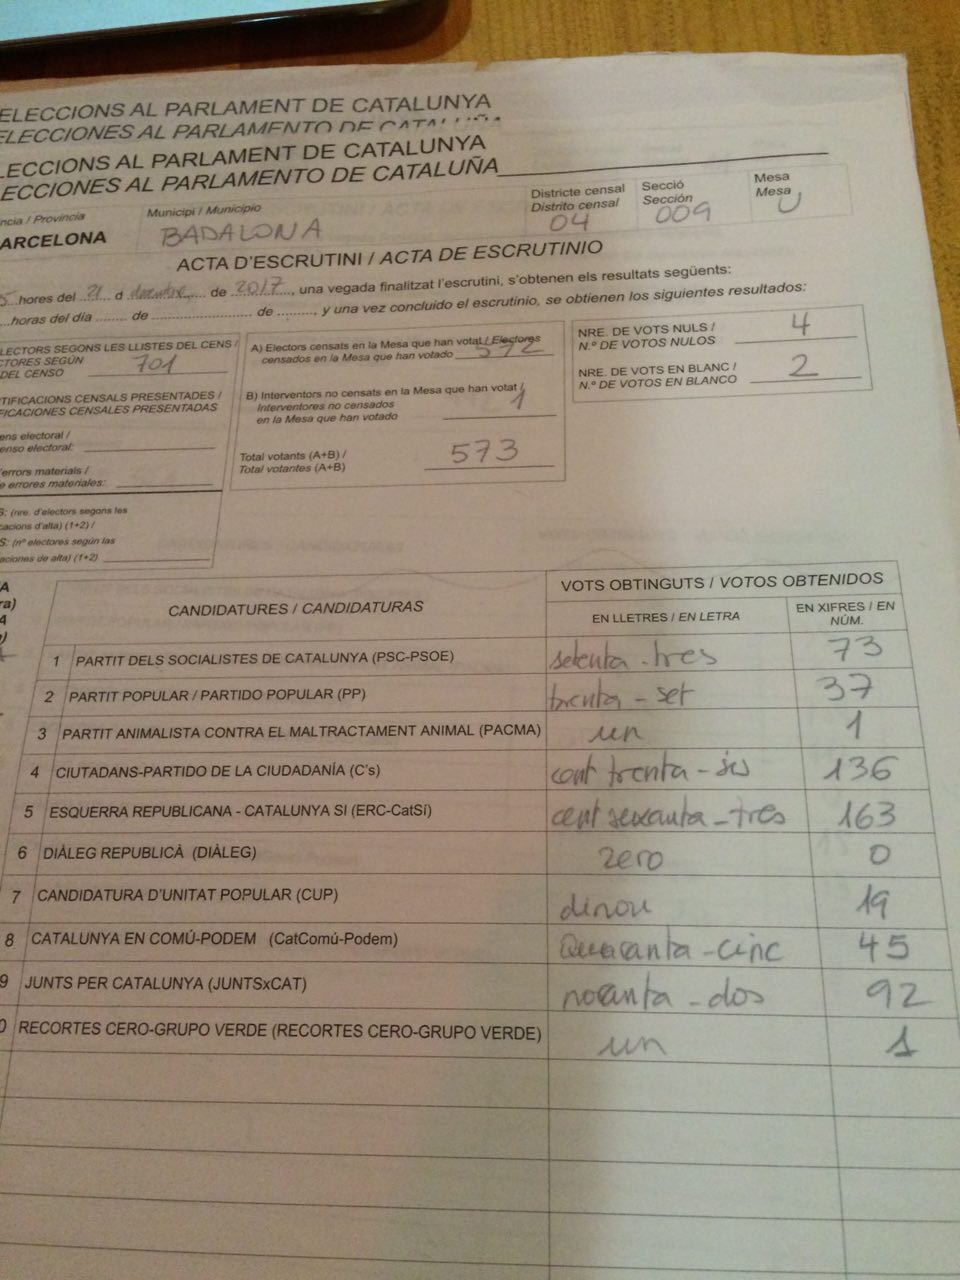 ELECCIONS AL PARLAMENT DE CATALUNYA
ELECCIONES AL PARLAMENTO DE CATALUÑA
LECCIONS AL PARLAMENT DE CATALUNYA
ECCIONES AL PARLAMENTO DE CATALUÑA
ncia / Provincia
ARCELONA
Municipi / Municipio
BADALONA
Districte censal
Distrito censal
04
Secció
Sección
009
Mesa
Mesa
U
ACTA D'ESCRUTINI / ACTA DE ESCRUTINIO
hores del 21 d desembre de 2017, una vegada finalitzat l'escrutini, s'obtenen els resultats següents:
...horas del día ........ de .......................... de ........, y una vez concluido el escrutinio, se obtienen los siguientes resultados:
LECTORS SEGONS LES LLISTES DEL CENS /
CTORES SEGÚN
DEL CENSO 701
TIFICACIONS CENSALS PRESENTADES /
FICACIONES CENSALES PRESENTADAS
ens electoral /
enso electoral:
'errors materials /
e errores materiales:
S: (nre. d'electors segons les
cacions d'alta) (1+2) /
S: (nº electores según las
aciones de alta) (1+2)
A) Electors censats en la Mesa que han votat / Electores
censados en la Mesa que han votado 572
B) Interventors no censats en la Mesa que han votat /
Interventores no censados
en la Mesa que han votado 1
Total votants (A+B) /
Total votantes (A+B) 573
NRE. DE VOTS NULS /
N.º DE VOTOS NULOS 4
NRE. DE VOTS EN BLANC /
N.º DE VOTOS EN BLANCO 2
A
ra)
A
)
CANDIDATURES / CANDIDATURAS
VOTS OBTINGUTS / VOTOS OBTENIDOS
EN LLETRES / EN LETRA
EN XIFRES / EN
NÚM.
1 PARTIT DELS SOCIALISTES DE CATALUNYA (PSC-PSOE) setenta-tres 73
2 PARTIT POPULAR / PARTIDO POPULAR (PP) trenta-set 37
3 PARTIT ANIMALISTA CONTRA EL MALTRACTAMENT ANIMAL (PACMA) un 1
4 CIUTADANS-PARTIDO DE LA CIUDADANÍA (C's) cent trenta-sis 136
5 ESQUERRA REPUBLICANA - CATALUNYA SI (ERC-CatSí) cent seixanta-tres 163
6 DIÀLEG REPUBLICÀ (DIÀLEG) zero 0
7 CANDIDATURA D'UNITAT POPULAR (CUP) dinou 19
8 CATALUNYA EN COMÚ-PODEM (CatComú-Podem) Quaranta-cinc 45
9 JUNTS PER CATALUNYA (JUNTSxCAT) noranta-dos 92
0 RECORTES CERO-GRUPO VERDE (RECORTES CERO-GRUPO VERDE) un 1